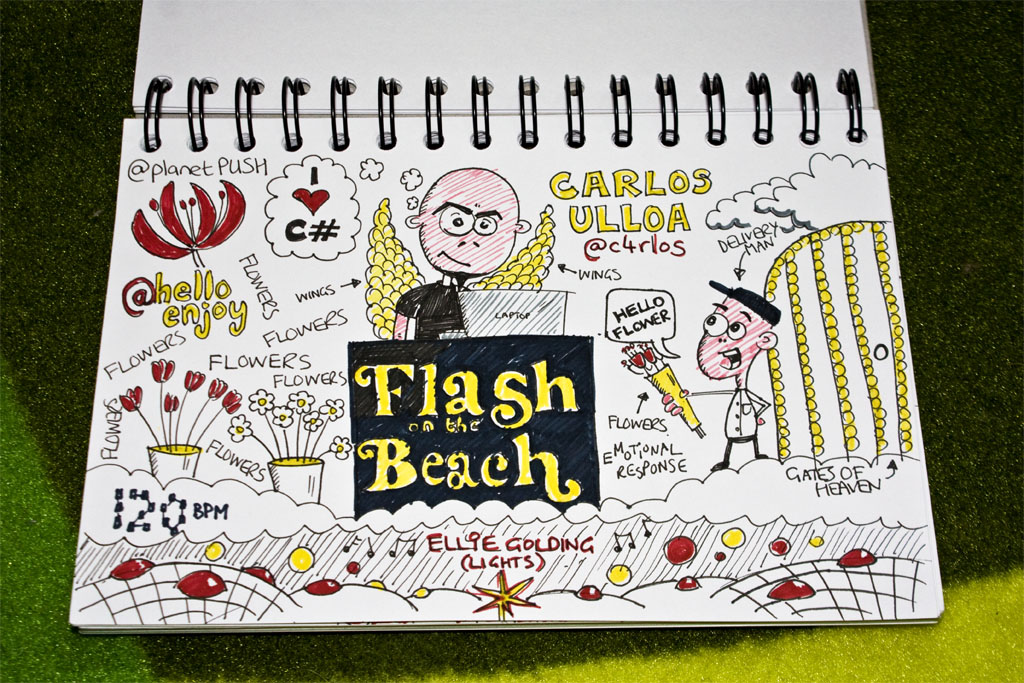 @planetPUSH
I
C#
CARLOS
ULLOA
@c4rlos
DELIVERY
MAN
@hello
enjoy
FLOWERS
WINGS
WINGS
LAPTOP
HELLO
FLOWER
FLOWERS
FLOWERS
FLOWERS
FLOWERS
FLOWERS
FLOWERS
Flash
on the
Beach
FLOWERS
EMOTIONAL
RESPONSE
GATES OF
HEAVEN
120 BPM
ELLIE GOLDING
(LIGHTS)